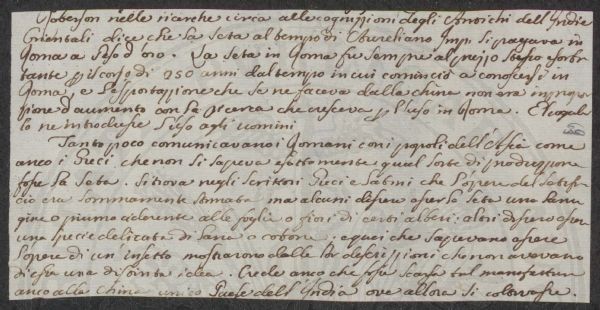 Roberson nelle ricerche circa alle cognizioni degli Antichi dell'Indie
Orientali dice che la seta al tempo di Aureliano Imp. si pagava in
Roma a peso d'oro. La seta in Roma fu sempre al prezzo stesso esorbi
tante p il corso di 250 anni dal tempo in cui cominciò a conoscersi in
Roma, e l'esportazione che se ne faceva dalla china non era in propor
zione d'aumento con la ricerca che cresceva p l'uso in Roma.
lo ne introdusse l'uso agli uomini
Tanto poco comunicavano i Romani con i popoli dell'Asia come
anco i Greci, che non si sapeva esattamente qual sorte di produzzione
fosse la seta. Si trova negli scrittori Greci e Latini che l'opere del
cio era sommamente stimata ma alcuni disero esser la seta una lanu
gine o piuma aderente alle foglie o fiori di certi alberi: altri disero esser
una specie delicata di lana o cotone; e quei che sapevano essere
l'opere di un'insetto mostrarono dalle lor descrizzioni che non avevano
di esse una distinta idea. Crede anco che fosse scarsa tal manifattura
anco alla China unico Paese dell'India ove allora si coltivasse.